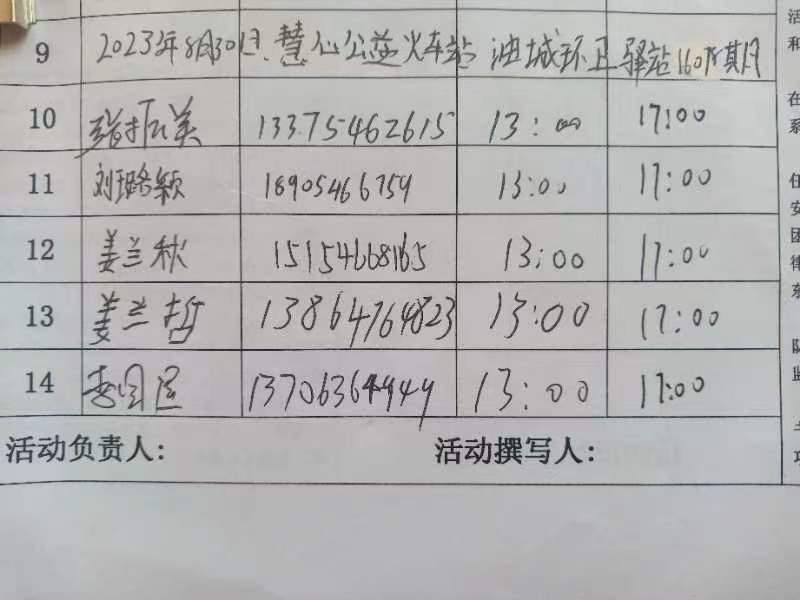 9 2023年8月30日.慧仁公益火车站 油城环卫驿站160期
10 振美 13375462615 13:00 17:00
11 刘璐颖 18905466759 13:00 17:00
12 姜兰秋 15154668165 13:00 17:00
13 姜兰哲 13864764823 13:00 17:00
14 李 13706364949 13:00 17:00
活动负责人: 活动撰写人:
活
和
在
系
任
安
团
律
东
队
监